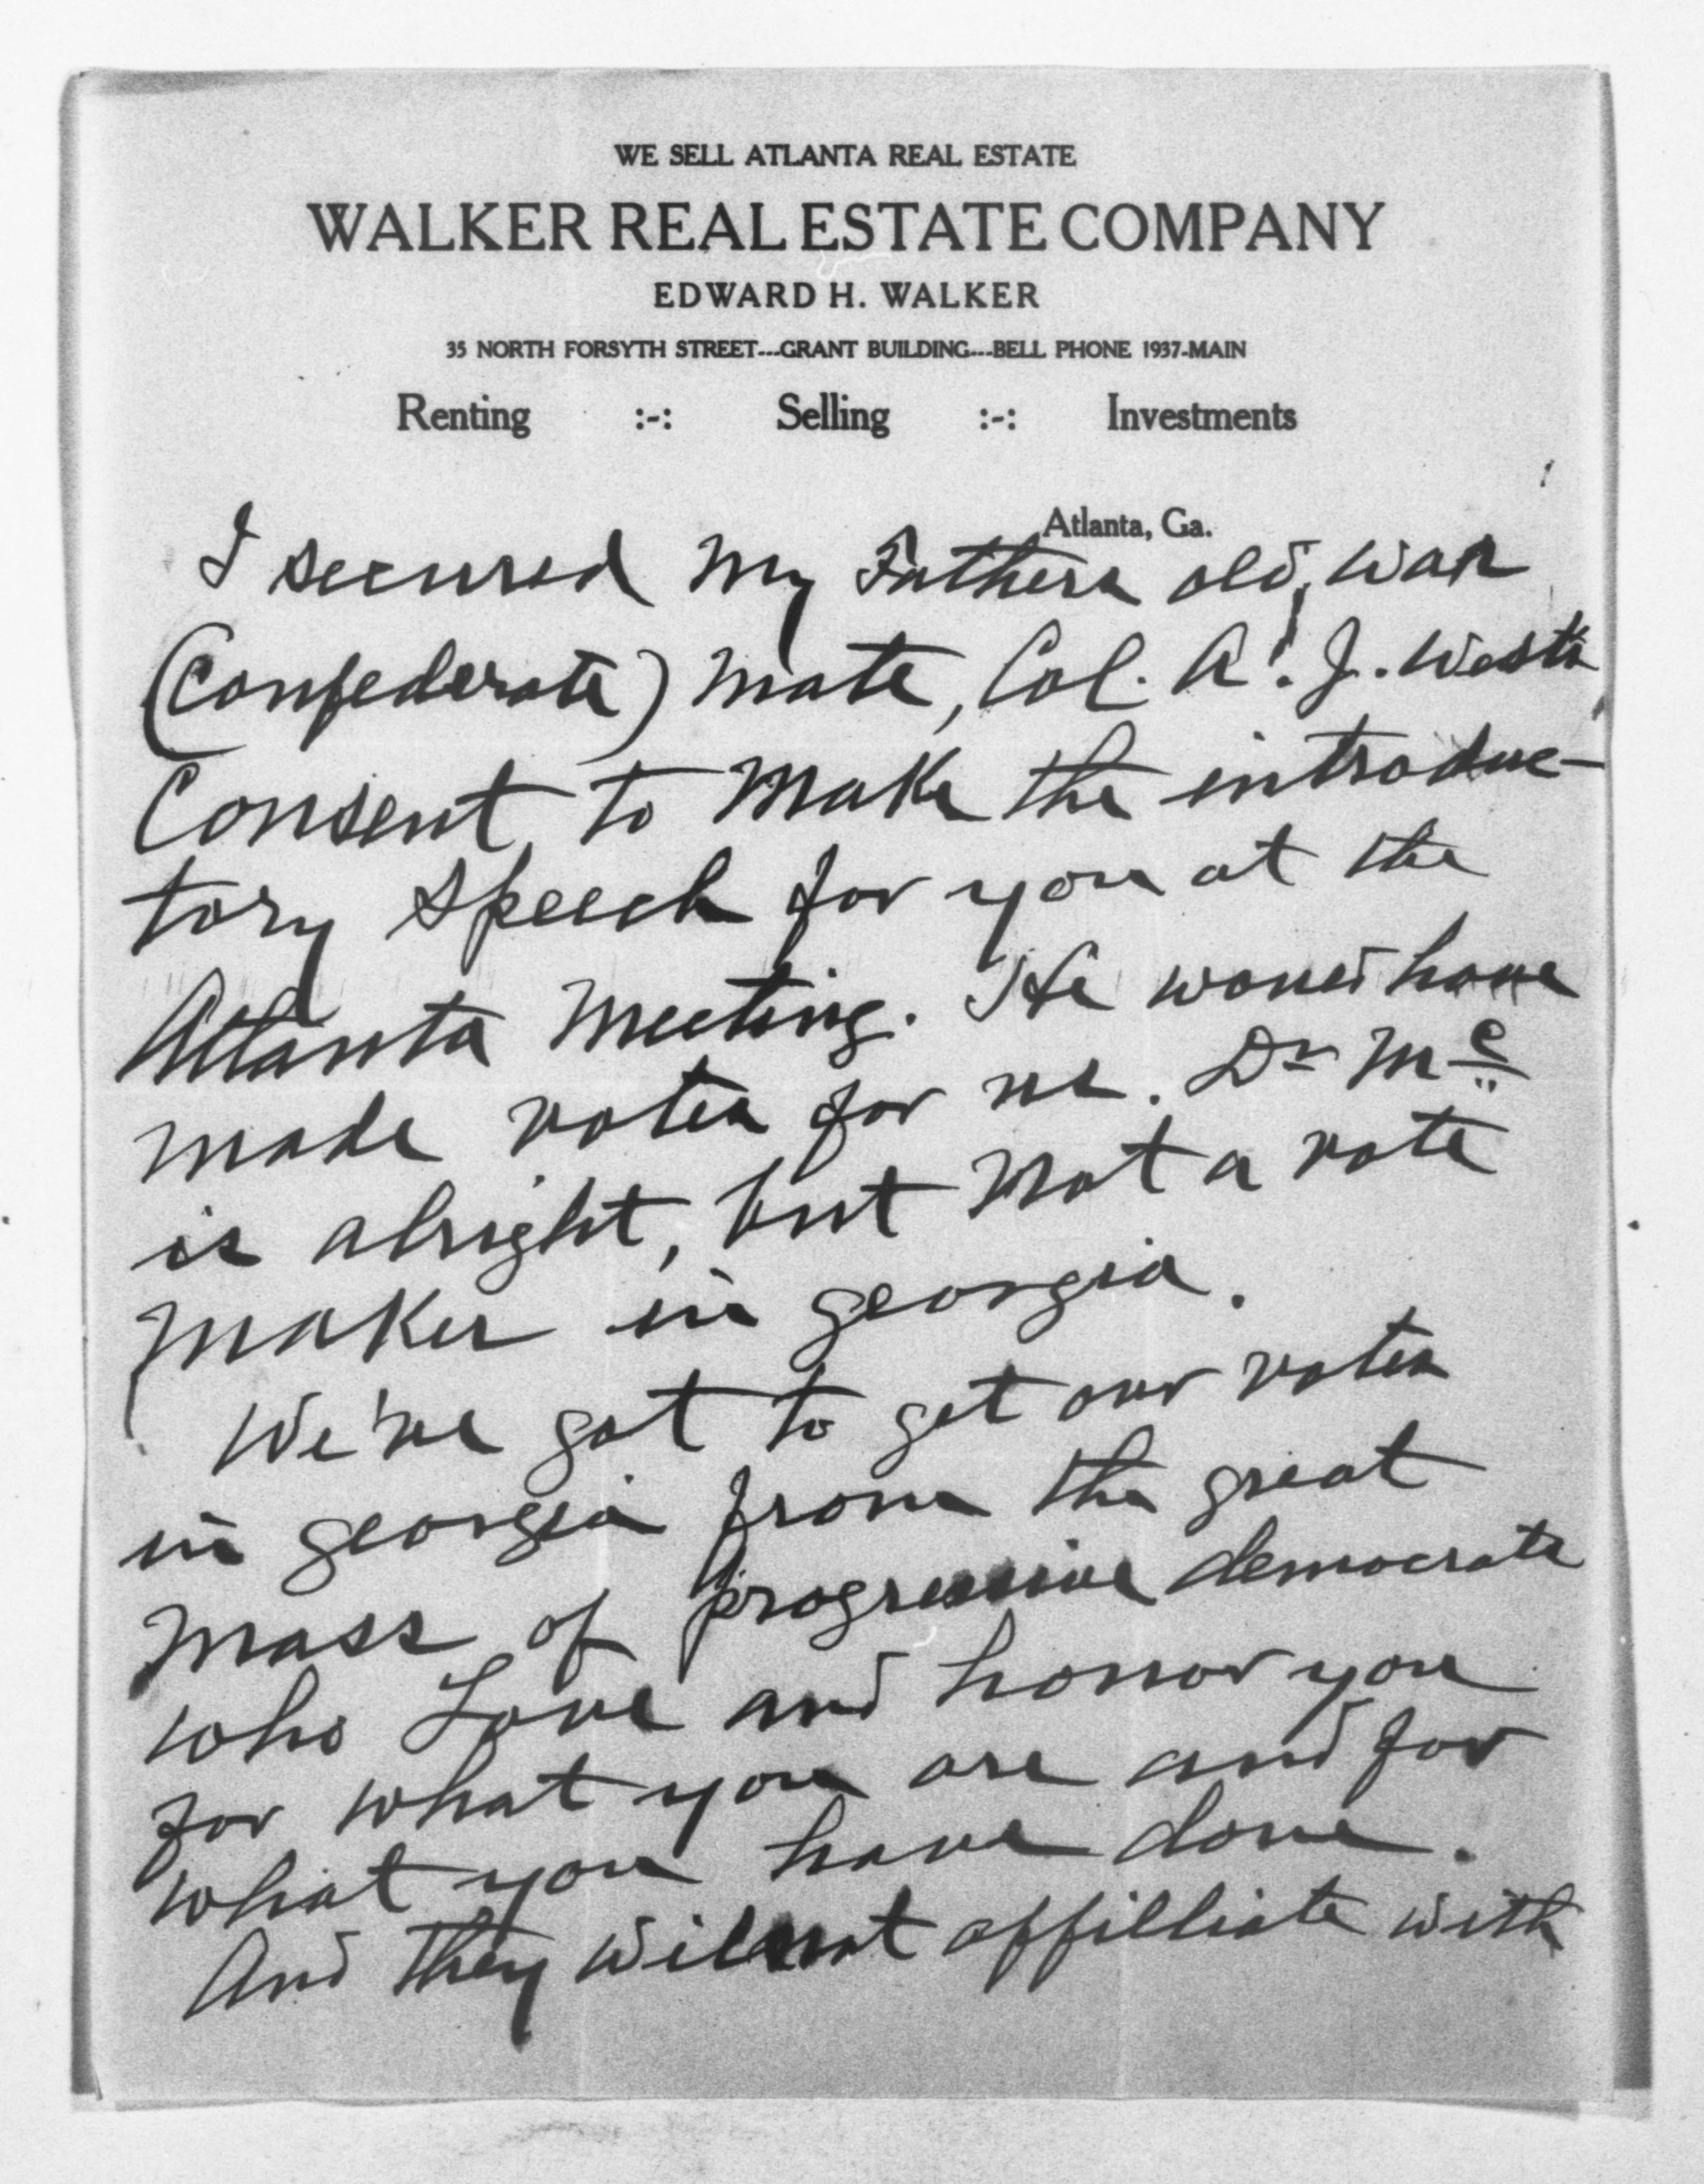 WE SELL ATLANTA REAL ESTATE
WALKER REAL ESTATE COMPANY
EDWARD H. WALKER
35 NORTH FORSYTH STREET---GRANT BUILDING---BELL PHONE 1937-MAIN
Renting :-: Selling :-: Investments
Atlanta, Ga.
I secured my Fathers old, war
(Confederate) mate, Col. A. J. West's
Consent to make the introduc-
tory speech for you at the
Atlanta meeting. He would have
made votes for us. Dr Mc
is alright, but not a vote
maker in georgia.
We've got to get our votes
in georgia from the great
mass of progressive democrats
who Love and honor you
for what you are and for
what you have done.
And they will not affilliate with